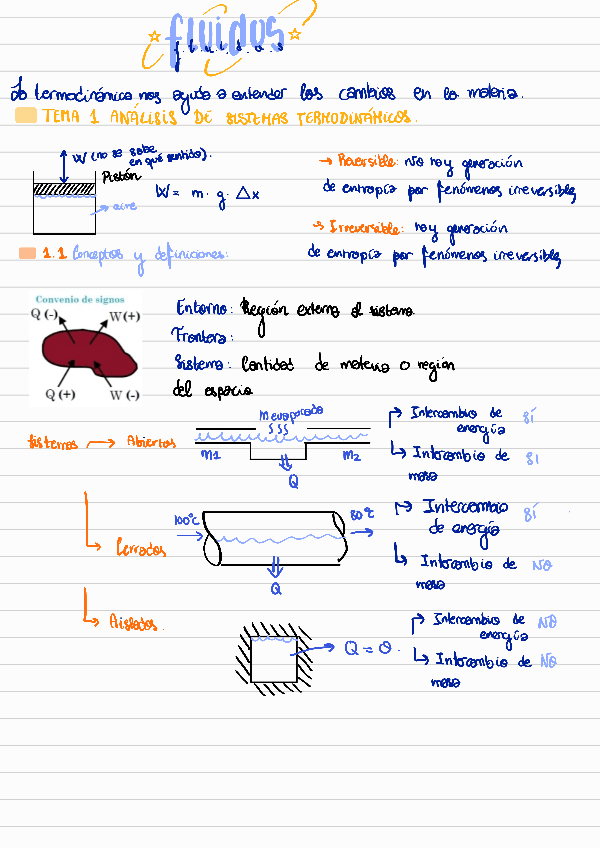 fluidos
f.l.u.i.d.o.s
La termodinámica nos ayuda a entender los cambios en la materia.
TEMA 1 ANÁLISIS DE SISTEMAS TERMODINÁMICOS.
W (no se sabe
en qué sentido).
Pistón
W = m · g · Δx
aire
→ Reversible: No hay generación
de entropía por fenómenos irreversibles
→ Irreversible: hay generación
de entropía por fenómenos irreversibles
1.1 Conceptos y definiciones:
Convenio de signos
Q (-) W (+)
Q (+) W (-)
Entorno: Región externa al sistema
Frontera:
Sistema: Cantidad de materia o región
del espacio
Sistemas → Abiertos
m evaporada
m1 m2
Q
Intercambio de energía SÍ
Intercambio de masa SI
Cerrados
100°C 80°C
Q
Intercambio de energía SÍ
Intercambio de masa NO
Aislados.
Q = 0.
Intercambio de energía NO
Intercambio de masa NO